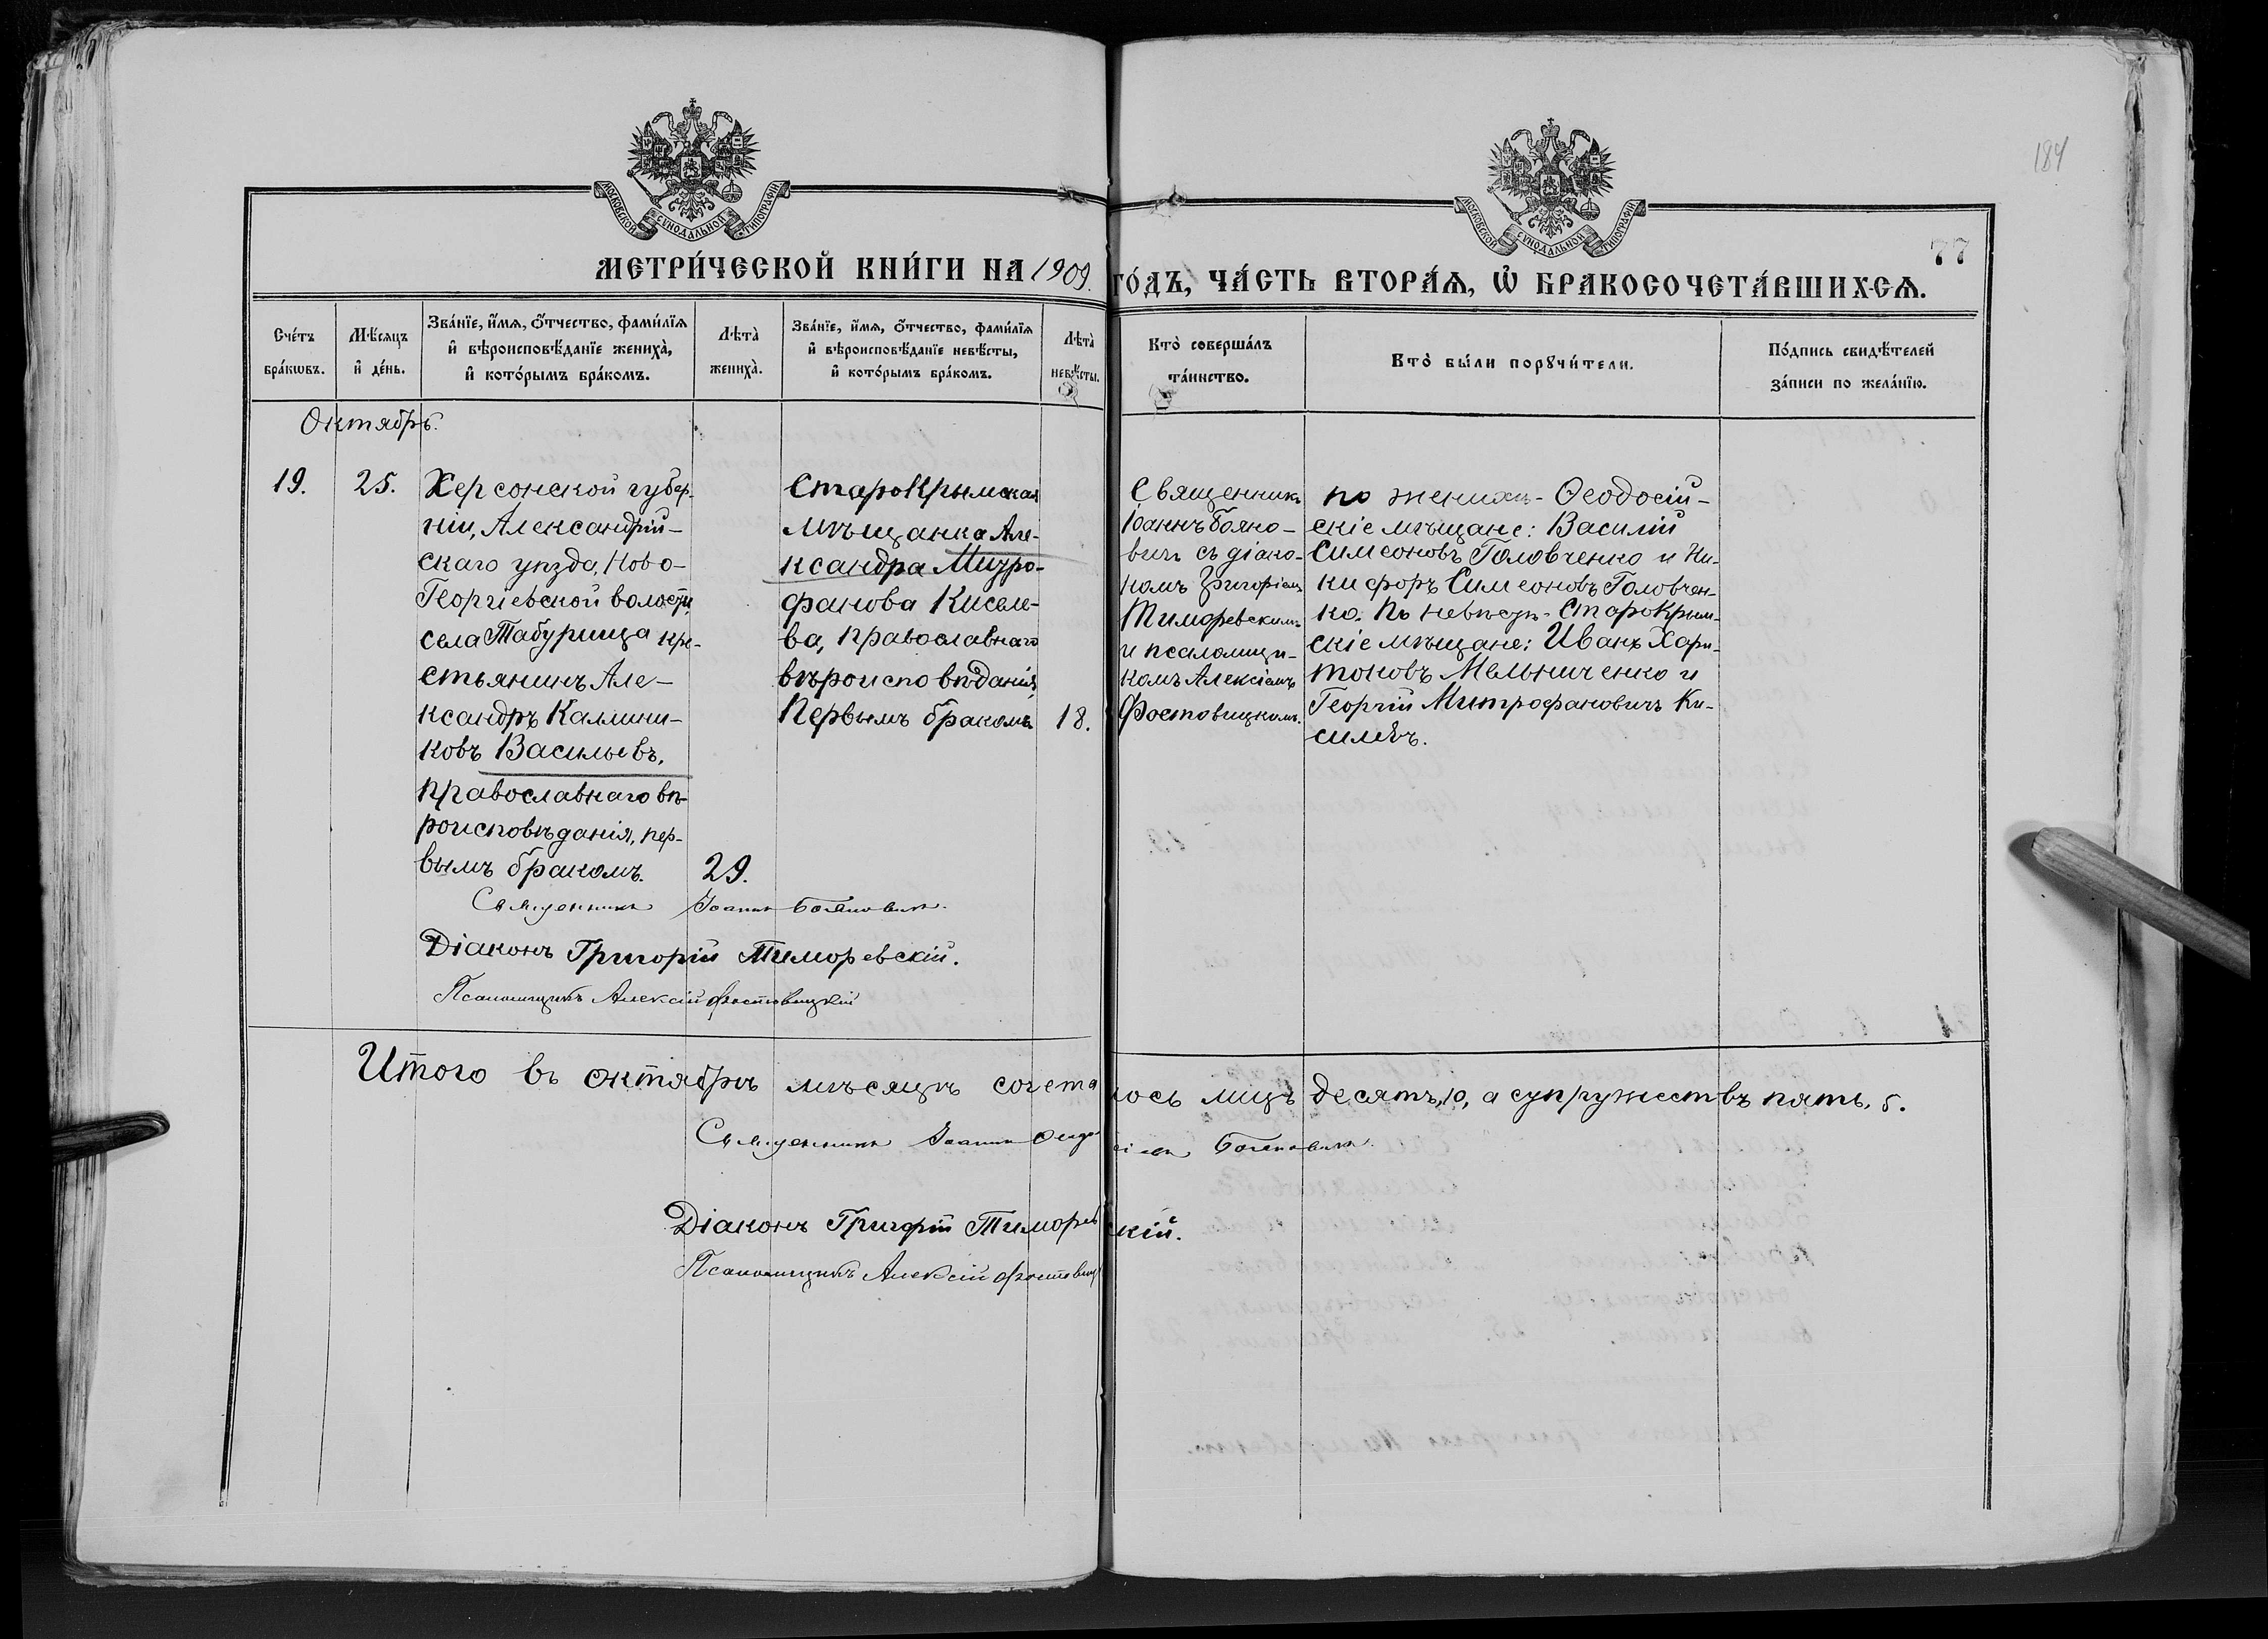 184
МОСКОВСКОЙ СѴНОДАЛЬНОЙ ТИПОГРАФІИ
МОСКОВСКОЙ СѴНОДАЛЬНОЙ ТИПОГРАФІИ
77
МЕТРИ́ЧЕСКОЙ КНИ́ГИ НА 1909. ГО́ДЪ, ЧА́СТЬ ВТОРА́Ѧ, Ѡ҆ БРАКОСОЧЕТА́ВШИХСѦ.
Сче́тъ
бра́кѡвъ.
Мѣ́сѧцъ
и҆ де́нь.
Зва́нїе, и҆́мѧ, о҆́тчество, фами́лїѧ
и҆ вѣроисповѣ́данїе жениха̀,
и҆ кото́рымъ бра́комъ.
Лѣта̀
жениха̀.
Зва́нїе, и҆́мѧ, о҆́тчество, фами́лїѧ
и҆ вѣроисповѣ́данїе невѣ́сты,
и҆ кото́рымъ бра́комъ.
Лѣта̀
невѣ́сты.
Кто̀ соверша́лъ
та́инство.
Кто̀ бы́ли порꙋчи́тели.
По́дпись свидѣ́телей
за́писи по жела́нїю.
Октябрь.
19.
25.
Херсонской губер-
ніи, Александрій-
скаго уѣзда, Ново-
Георгіевской волости
села Табурища кре-
стьянинъ Але-
ксандръ Калини-
ковъ Васильевъ,
православнаго вѣ-
роисповѣданія, пер-
вымъ бракомъ.
29.
СтароКрымская
мѣщанка Але-
ксандра Митро-
фанова Киселе-
ва, православнаго
вѣроисповѣданія,
первымъ бракомъ
18.
Священникъ
Іоаннъ Бояно-
вичъ съ діако-
номъ Григоріемъ
Тиморевскимъ
и псаломщи-
комъ Алексіемъ
Фостовицкимъ.
по женихѣ - Ѳеодосій-
скіе мѣщане: Василій
Симеоновъ Головченко и Ни-
кифоръ Симеоновъ Головчен-
ко. По невѣстѣ - СтароКрым-
скіе мѣщане: Иванъ Хари-
тоновъ Мельниченко и
Георгій Митрофановичъ Ки-
силевъ.
Священникъ Іоаннъ Бояновичъ.
Діаконъ Григорій Тиморевскій.
Псаломщикъ Алексій Фостовицкій
Итого въ октябрѣ мѣсяцѣ сочеталось лицъ десять, 10, а супружествъ пять, 5.
Священникъ Іоаннъ Бояновичъ.
Діаконъ Григорій Тиморевскій.
Псаломщикъ Алексій Фостовиц